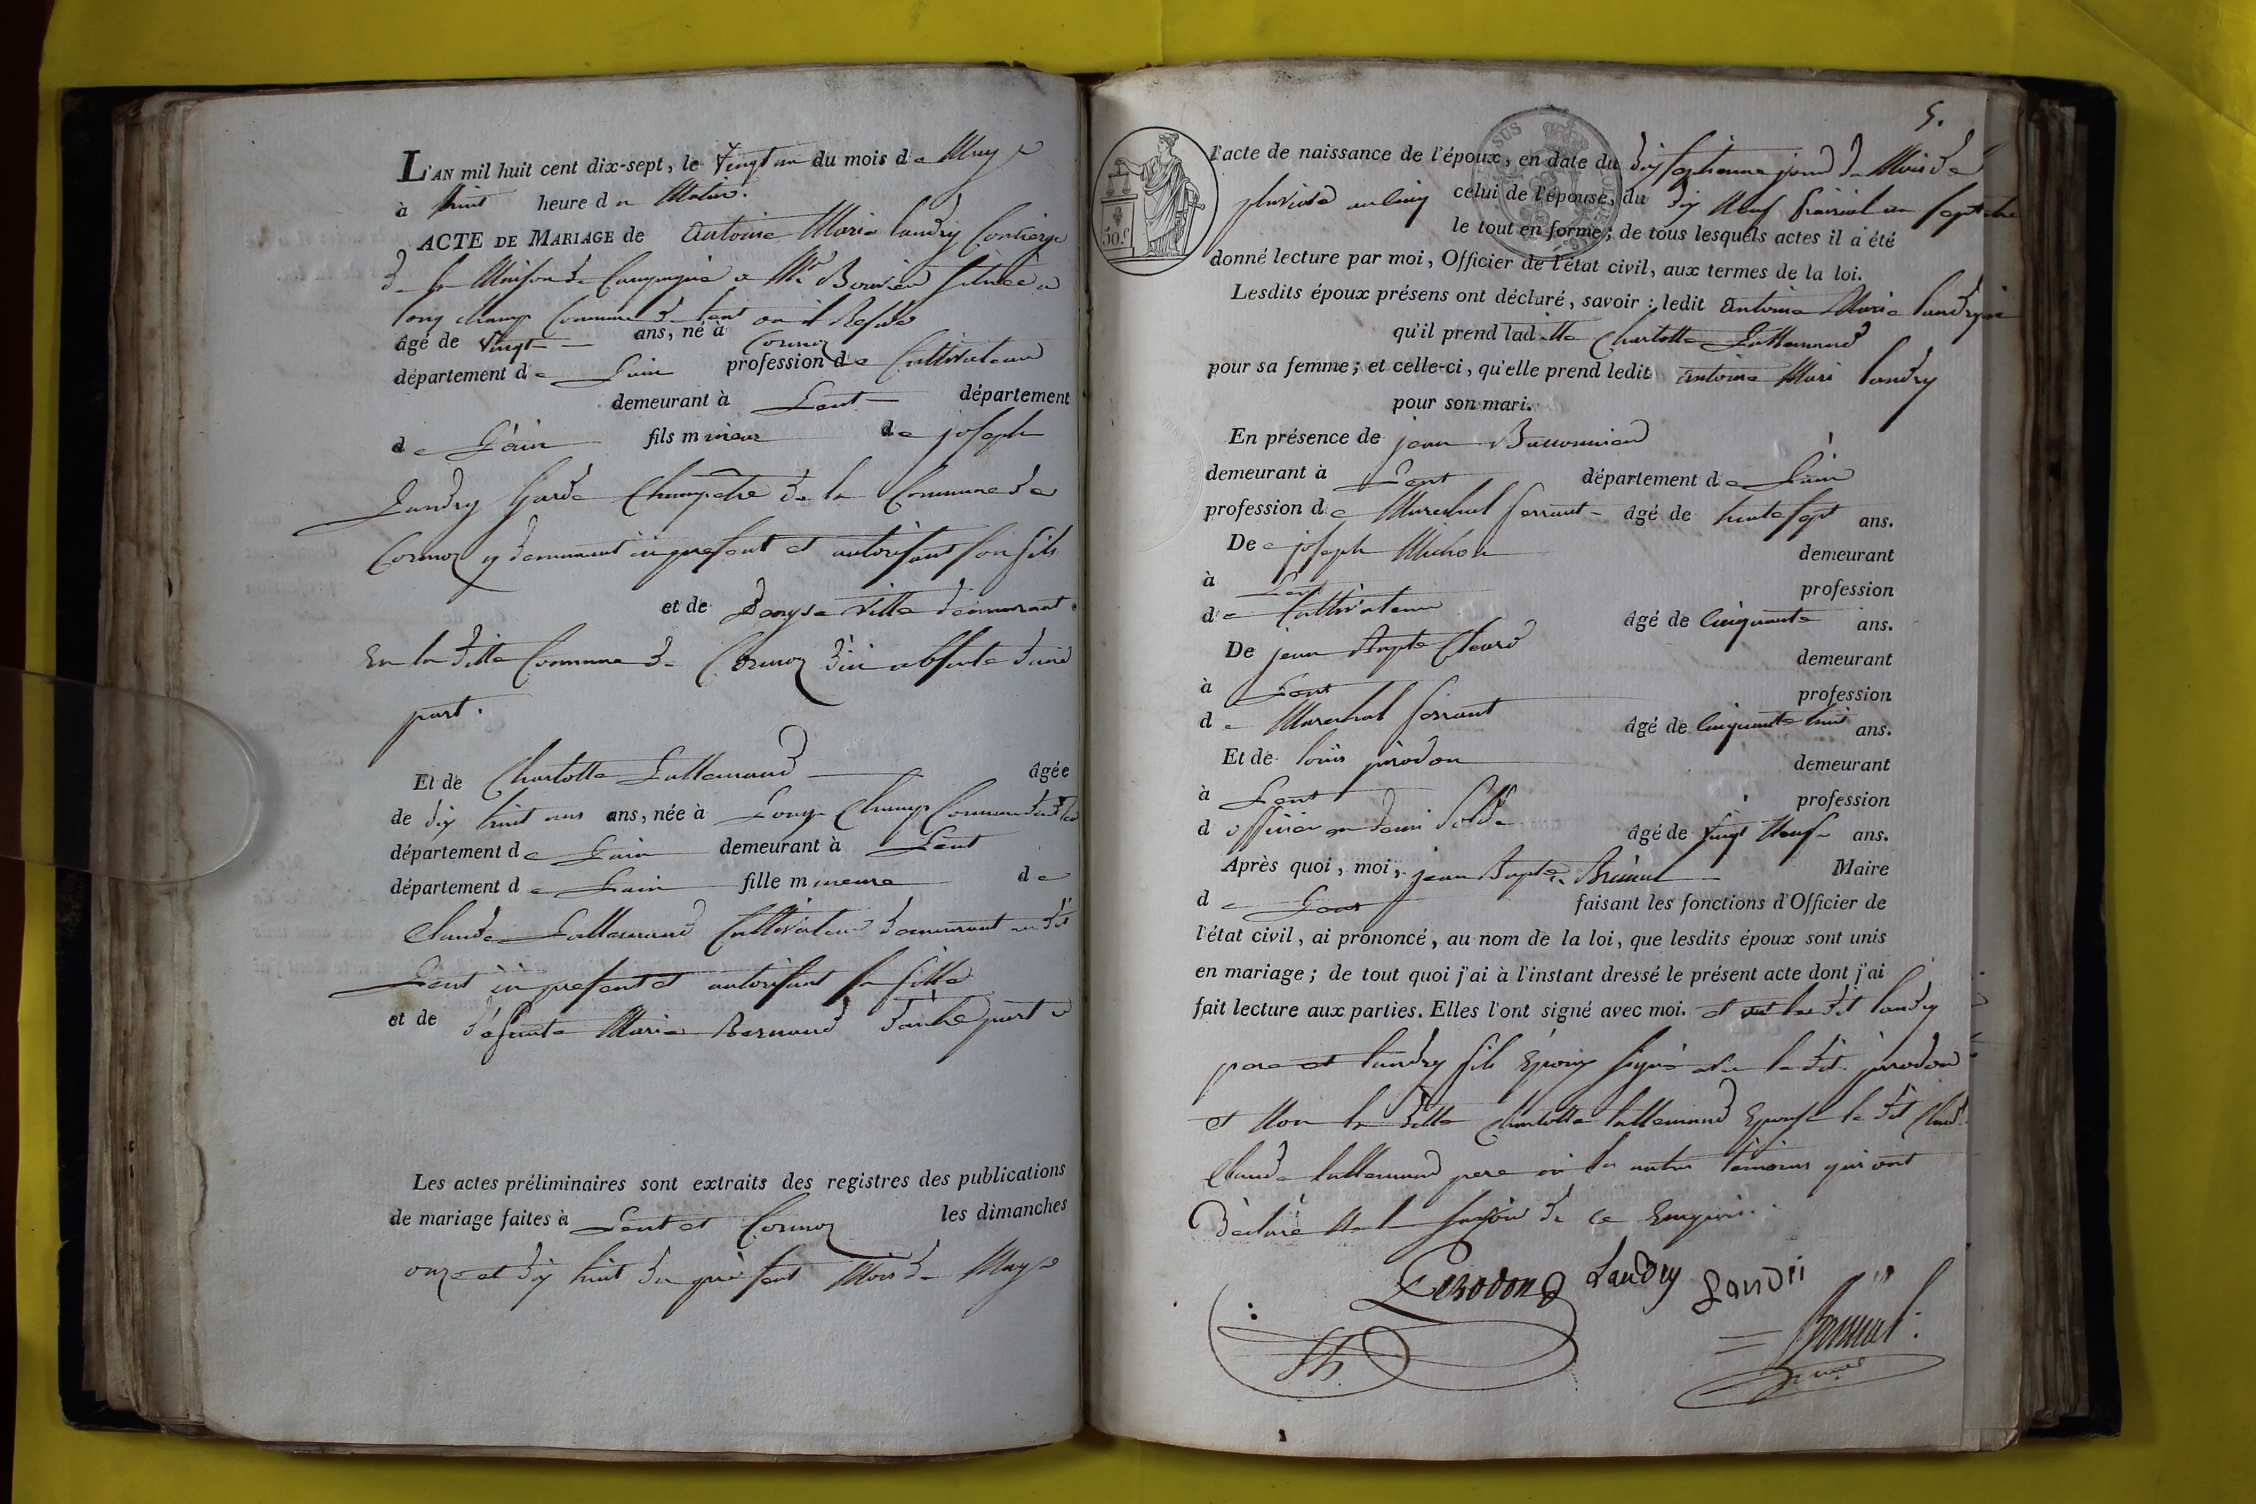 L'AN mil huit cent dix-sept, le vingt un du mois de May
à huit heure du Matin.
ACTE DE MARIAGE de Antoine Marie Landry Concierge
de la Maison de Campagne a Mr Bouvier située a
long champ Commune de Lent ou il Reside
âgé de vingt ans, né à Cormoz
département de Lain profession de Cultivateur
demeurant à Lent département
de L'ain fils mineur de joseph
Landry Garde Champetre de la Commune de
Cormoz y demeurant ici present et autorisant son fils
et de Denyse ville demeurant
En la ditte Commune de Cormoz d'ici absente d'une
part.
Et de Charlotte Lallemand âgée
de dix huit ans ans, née à Long Champ Commune de Lent
département de Lain demeurant à Lent
département de Lain fille mineure de
Claude Lallemand Cultivateur demeurant au dit
Lent ici present et autorisant sa fille
et de défunte Marie Bernard d'autre part
Les actes préliminaires sont extraits des registres des publications
de mariage faites à Lent et Cormoz les dimanches
onze et dix huit du présent Mois de May
5.
l'acte de naissance de l'époux, en date du dix septieme jour du Mois de
pluviose an cinq celui de l'épouse, du dix Neuf prairial an sept
le tout en forme; de tous lesquels actes il a été
donné lecture par moi, Officier de l'état civil, aux termes de la loi.
Lesdits époux présens ont déclaré, savoir : ledit Antoine Marie Landry
qu'il prend laditte Charlotte Lallemand
pour sa femme; et celle-ci, qu'elle prend ledit Antoine Mari Landry
pour son mari.
En présence de jean
demeurant à Lent département de Lain
profession de Marechal ferrant âgé de trente sept ans.
De joseph Michon demeurant
à Lent profession
de Cultivateur âgé de Cinquante ans.
De jean Bapte demeurant
à Lent profession
de Marechal ferrant âgé de Cinquante huit ans.
Et de louis pirodon demeurant
à Lent profession
d officier en demi solde âgé de vingt Neuf ans.
Après quoi, moi, jean Bapte Maire
de Lent faisant les fonctions d'Officier de
l'état civil, ai prononcé, au nom de la loi, que lesdits époux sont unis
en mariage; de tout quoi j'ai à l'instant dressé le présent acte dont j'ai
fait lecture aux parties. Elles l'ont signé avec moi. et les dit landry
pere et landry fils Epoux signé avec le dit pirodon
et Non la ditte Charlotte lallemand Epouse le dit
Claude lallemand pere ni les autres témoins qui ont
déclaré Ne le savoir de ce Enquis.
Pirodon Landry Landri
50.c